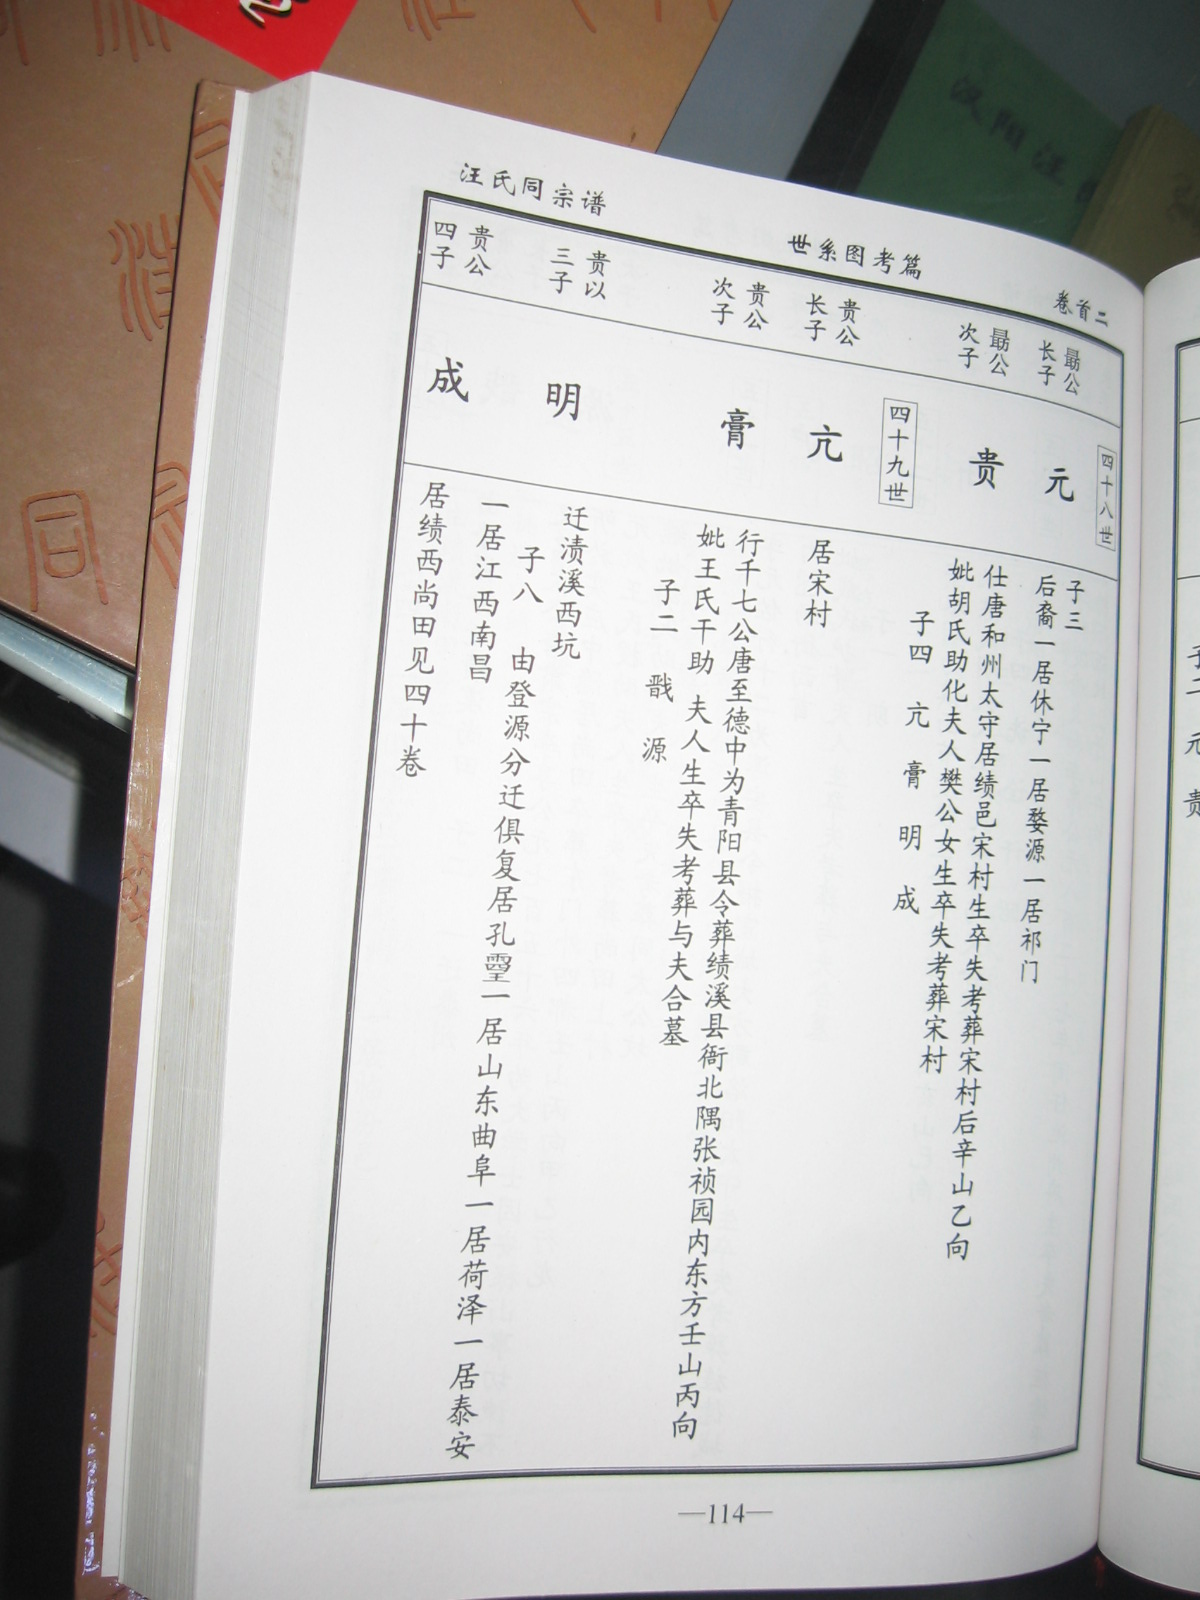 汪氏同宗谱
世系图考篇
卷首二
四十八世
勗公
长子
元
子三
后裔一居休宁一居婺源一居祁门
勗公
次子
贵
仕唐和州太守居绩邑宋村生卒失考葬宋村后辛山乙向
妣胡氏助化夫人樊公女生卒失考葬宋村
子四 亢 膏 明 成
四十九世
贵公
长子
亢
居宋村
贵公
次子
膏
行千七公唐至德中为青阳县令葬绩溪县衙北隅张祯园内东方壬山丙向
妣王氏干助 夫人生卒失考葬与夫合墓
子二 戬 源
贵以
三子
明
迁渍溪西坑
子八 由登源分迁俱复居孔灵一居山东曲阜一居荷泽一居泰安
一居江西南昌
贵公
四子
成
居绩西尚田见四十卷
—114—
汉阳汪
同